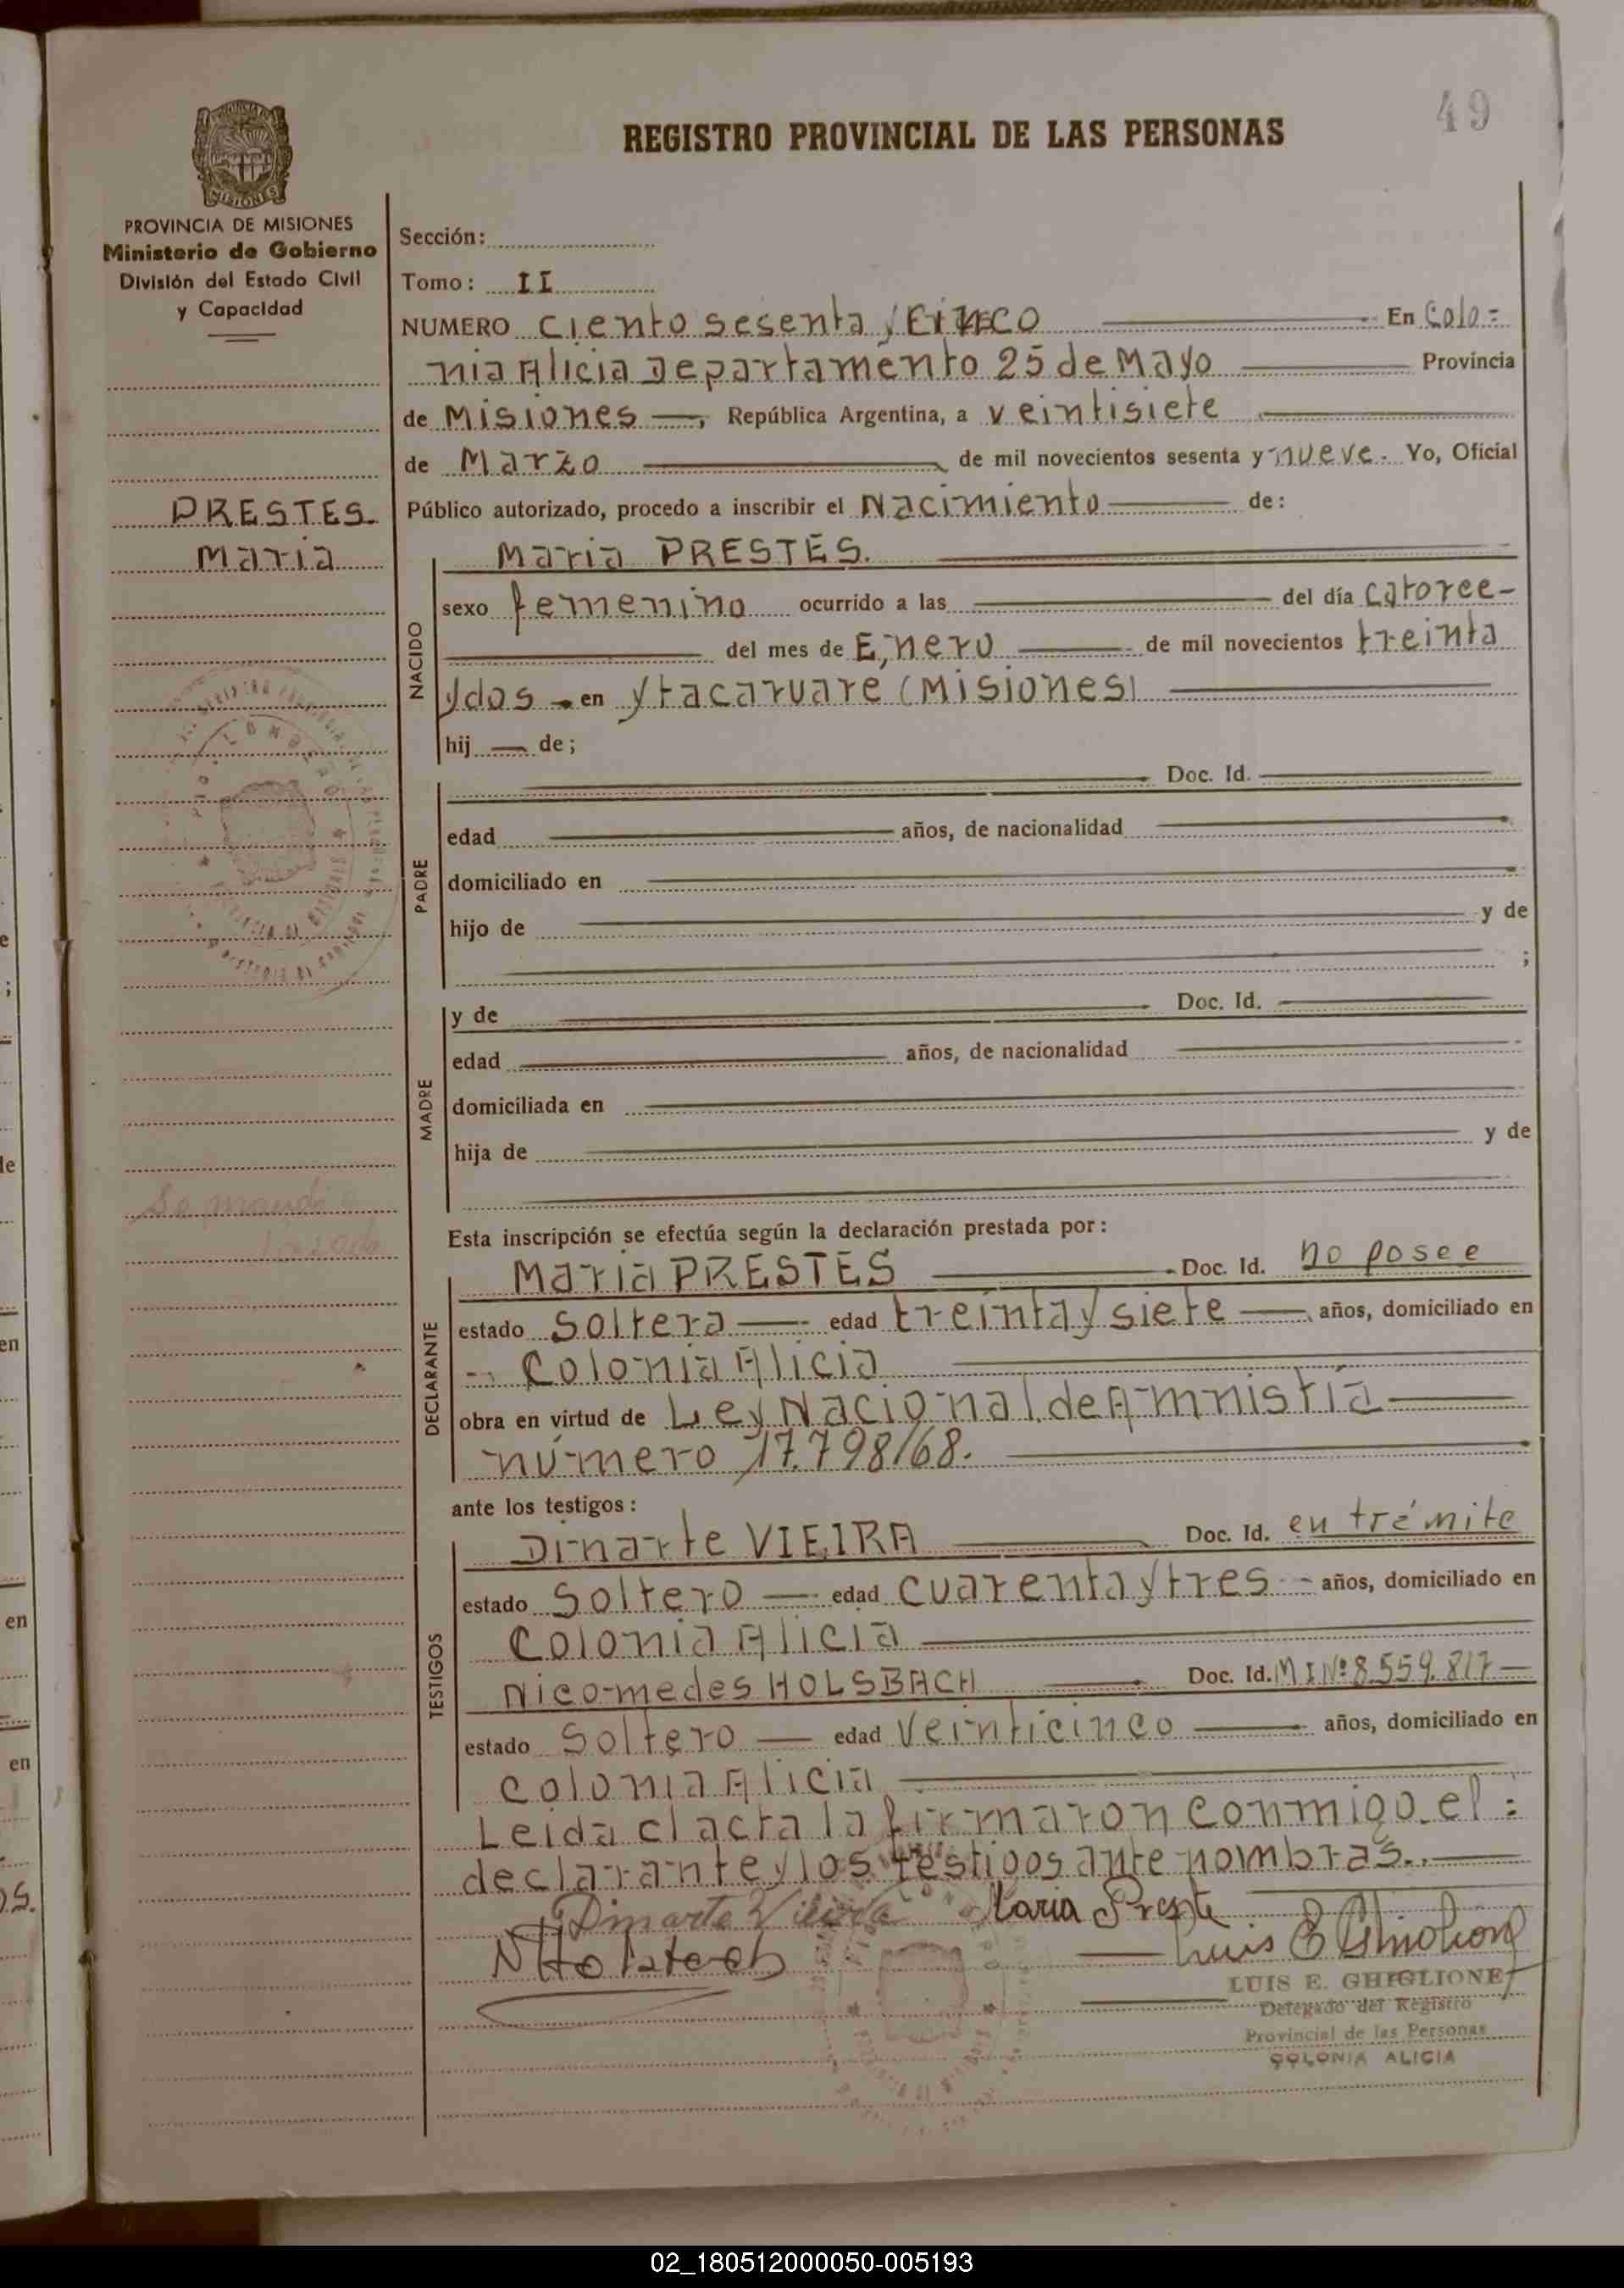 49
REGISTRO PROVINCIAL DE LAS PERSONAS
PROVINCIA DE MISIONES
Ministerio de Gobierno
División del Estado Civil
y Capacidad
PRESTES
Maria
Sección:
Tomo: II
NUMERO Ciento sesenta y cinco En Colo=
nia Alicia Departamento 25 de Mayo Provincia
de Misiones, República Argentina, a veintisiete
de Marzo de mil novecientos sesenta y nueve. Yo, Oficial
Público autorizado, procedo a inscribir el Nacimiento de:
NACIDO
Maria PRESTES.
sexo femenino ocurrido a las del día Catorce-
del mes de E,nero de mil novecientos treinta
y dos - en ytacaruare (Misiones)
hij de;
PADRE
Doc. Id.
edad años, de nacionalidad
domiciliado en
hijo de y de
;
MADRE
y de Doc. Id.
edad años, de nacionalidad
domiciliada en
hija de y de
Se mandó
Esta inscripción se efectúa según la declaración prestada por:
DECLARANTE
Maria PRESTES Doc. Id. no posee
estado Soltera edad treinta y siete años, domiciliado en
Colonia Alicia
obra en virtud de Ley Nacional de Amnistía
número 17.798/68.
ante los testigos:
TESTIGOS
Dinarte VIEIRA Doc. Id. en trámite
estado Soltero edad cuarenta y tres años, domiciliado en
Colonia Alicia
Nicomedes HOLSBACH Doc. Id. M I Nº 8.559.817
estado Soltero edad Veinticinco años, domiciliado en
Colonia Alicia
Leida el acta la firmaron conmigo el:
declarante y los testigos ante nombras.
Dinarte Vieira Maria Preste
NHolsbach Luis E Ghiglione
LUIS E. GHIGLIONE
Delegado del Registro
Provincial de las Personas
COLONIA ALICIA
02_180512000050-005193